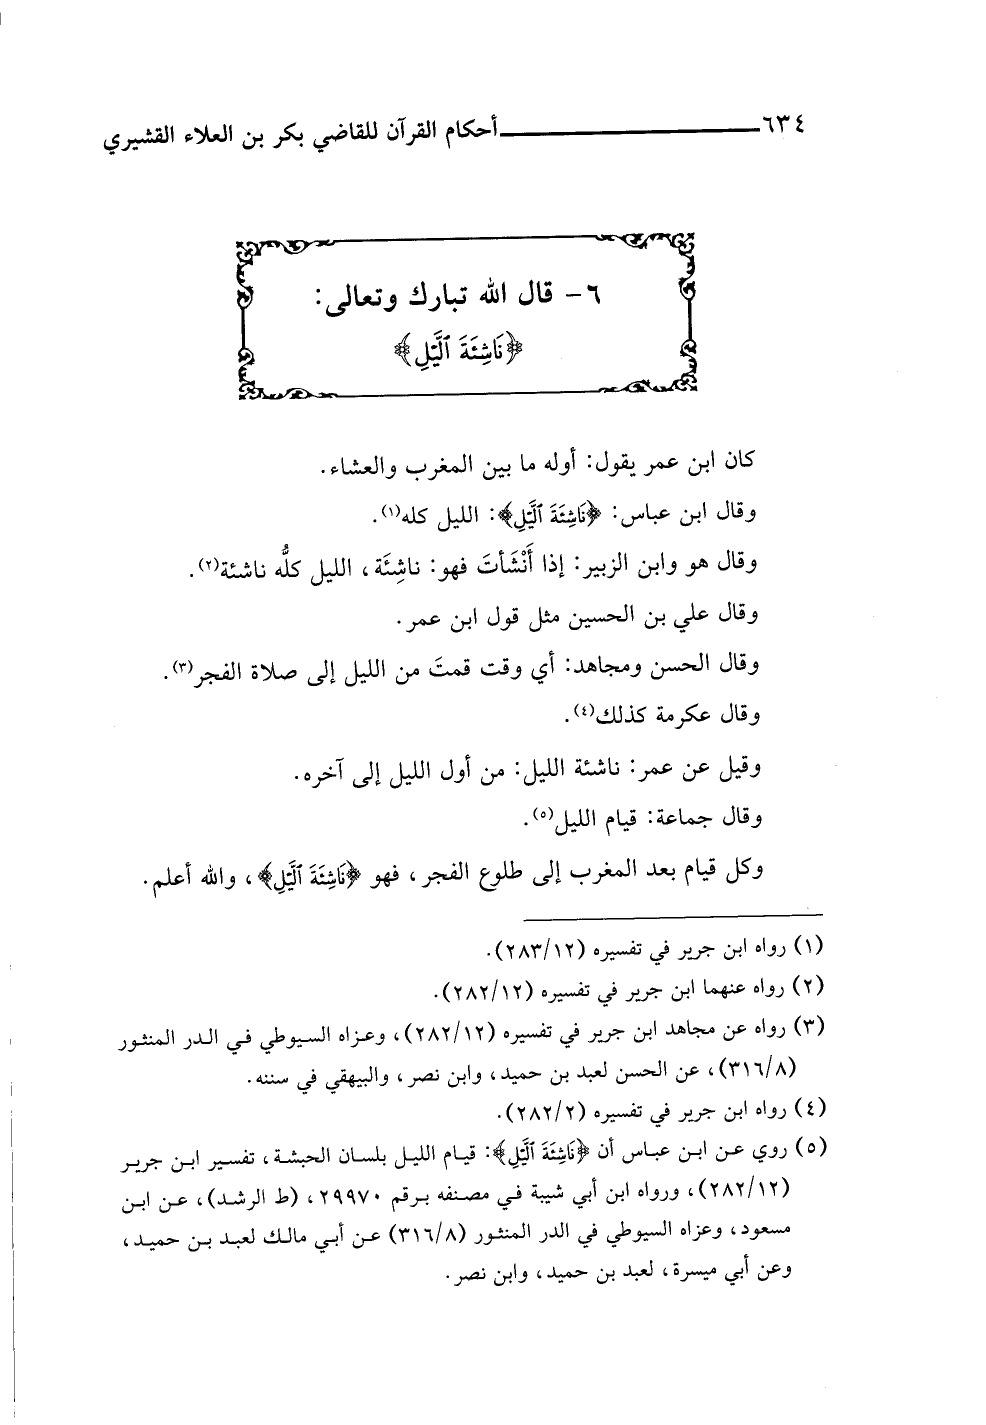 ٦٣٤ أحكام القرآن للقاضي بكر بن العلاء القشيري
٦- قال الله تبارك وتعالى:
﴿نَاشِئَةَ ٱلَّيْلِ﴾
كان ابن عمر يقول: أوله ما بين المغرب والعشاء.
وقال ابن عباس: ﴿نَاشِئَةَ ٱلَّيْلِ﴾: الليل كله(١).
وقال هو وابن الزبير: إذا أَنْشَأتَ فهو: ناشِئَة، الليل كلُّه ناشئة(٢).
وقال علي بن الحسين مثل قول ابن عمر.
وقال الحسن ومجاهد: أي وقت قمتَ من الليل إلى صلاة الفجر(٣).
وقال عكرمة كذلك(٤).
وقيل عن عمر: ناشئة الليل: من أول الليل إلى آخره.
وقال جماعة: قيام الليل(٥).
وكل قيام بعد المغرب إلى طلوع الفجر، فهو ﴿نَاشِئَةَ ٱلَّيْلِ﴾، والله أعلم.
(١) رواه ابن جرير في تفسيره (٢٨٣/١٢).
(٢) رواه عنهما ابن جرير في تفسيره (٢٨٢/١٢).
(٣) رواه عن مجاهد ابن جرير في تفسيره (٢٨٢/١٢)، وعزاه السيوطي في الدر المنثور
(٣١٦/٨)، عن الحسن لعبد بن حميد، وابن نصر، والبيهقي في سننه.
(٤) رواه ابن جرير في تفسيره (٢٨٢/٢).
(٥) روي عن ابن عباس أن ﴿نَاشِئَةَ ٱلَّيْلِ﴾: قيام الليل بلسان الحبشة، تفسير ابن جرير
(٢٨٢/١٢)، ورواه ابن أبي شيبة في مصنفه برقم ٢٩٩٧٠، (ط الرشد)، عن ابن
مسعود، وعزاه السيوطي في الدر المنثور (٣١٦/٨) عن أبي مالك لعبد بن حميد،
وعن أبي ميسرة، لعبد بن حميد، وابن نصر.